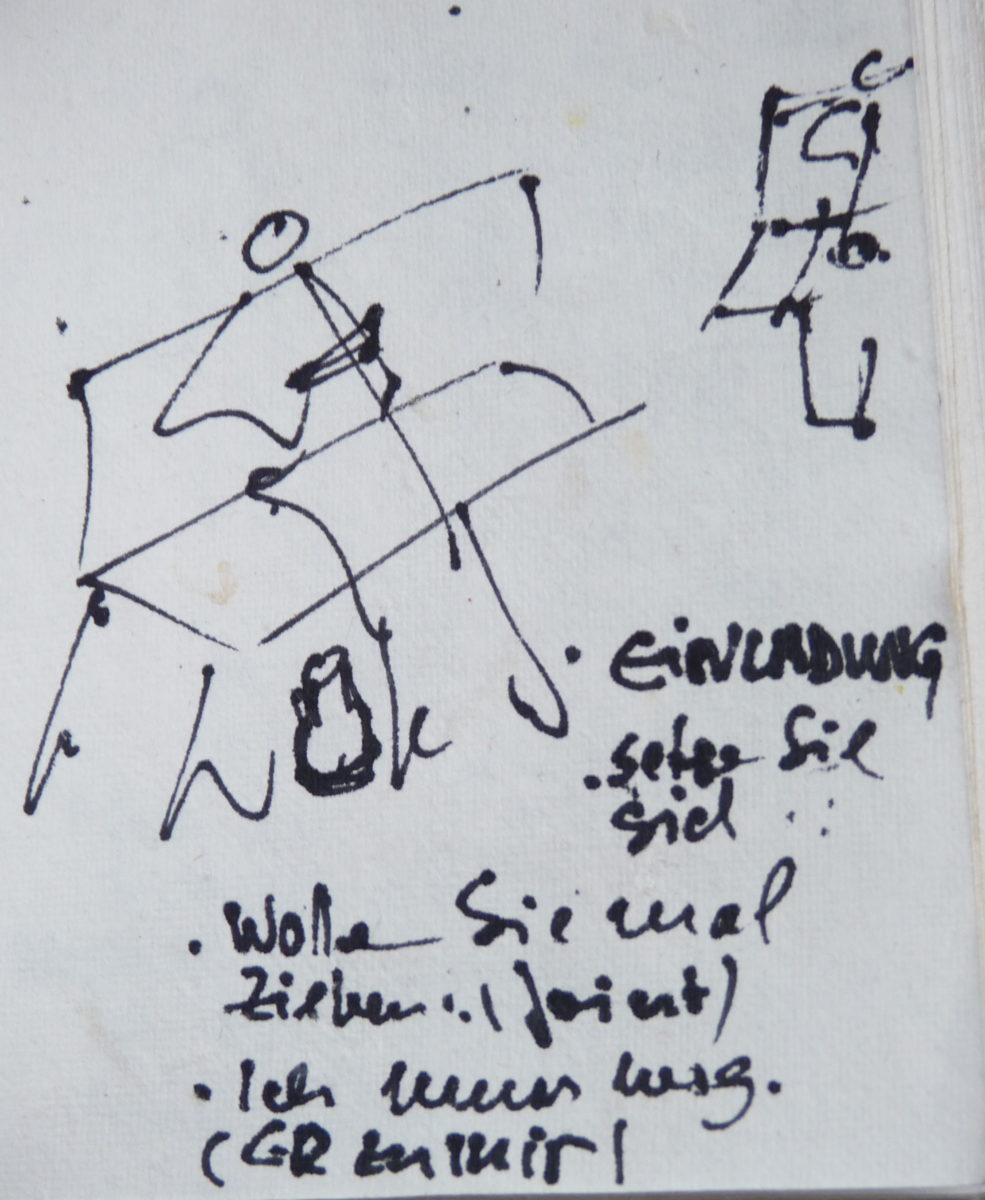 · EINLADUNG
. setze Sie
Sich ...
. Wolle Sie mal
Ziehen .. (Joint)
· Ich muss weg.
(GR zu mir)